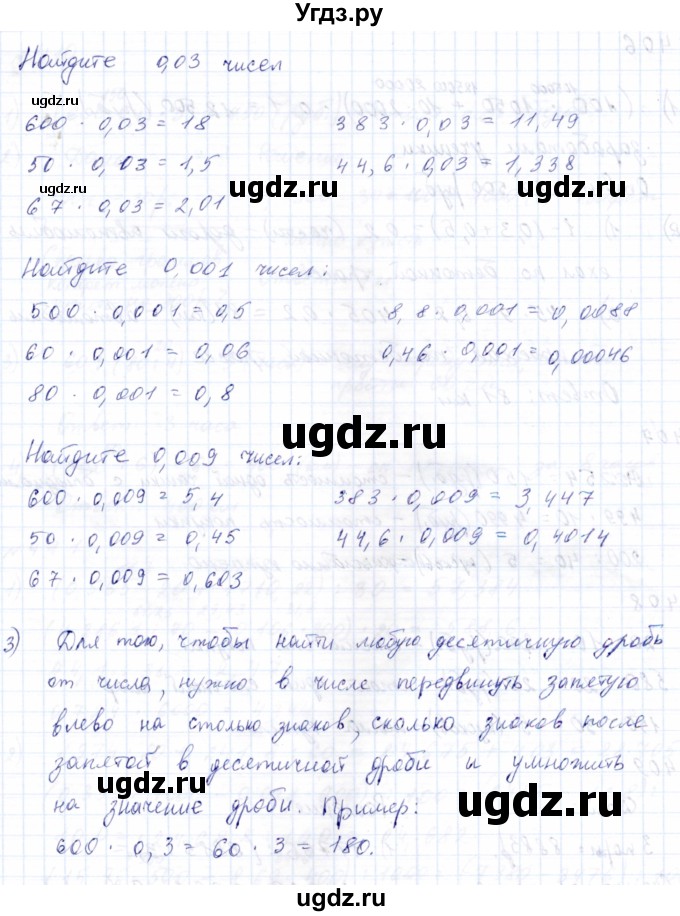 Угдз.ру
Найдите 0,03 чисел
600 · 0,03 = 18    383 · 0,03 = 11,49
50 · 0,03 = 1,5    44,6 · 0,03 = 1,338
67 · 0,03 = 2,01
Найдите 0,001 чисел:
500 · 0,001 = 0,5    8,8 · 0,001 = 0,0088
60 · 0,001 = 0,06    0,46 · 0,001 = 0,00046
80 · 0,001 = 0,8
Найдите 0,009 чисел:
600 · 0,009 = 5,4    383 · 0,009 = 3,447
50 · 0,009 = 0,45    44,6 · 0,009 = 0,4014
67 · 0,009 = 0,603
3) Для того, чтобы найти любую десятичную дробь
от числа, нужно в числе передвинуть запятую
влево на столько знаков, сколько знаков после
запятой в десятичной дроби и умножить
на значение дроби. Пример:
600 · 0,3 = 60 · 3 = 180.
ugdz.ru
ugdz.ru
ugdz.ru
ugdz.ru
ugdz.ru
ugdz.ru
ugdz.ru
ugdz.ru
ugdz.ru
ugdz.ru